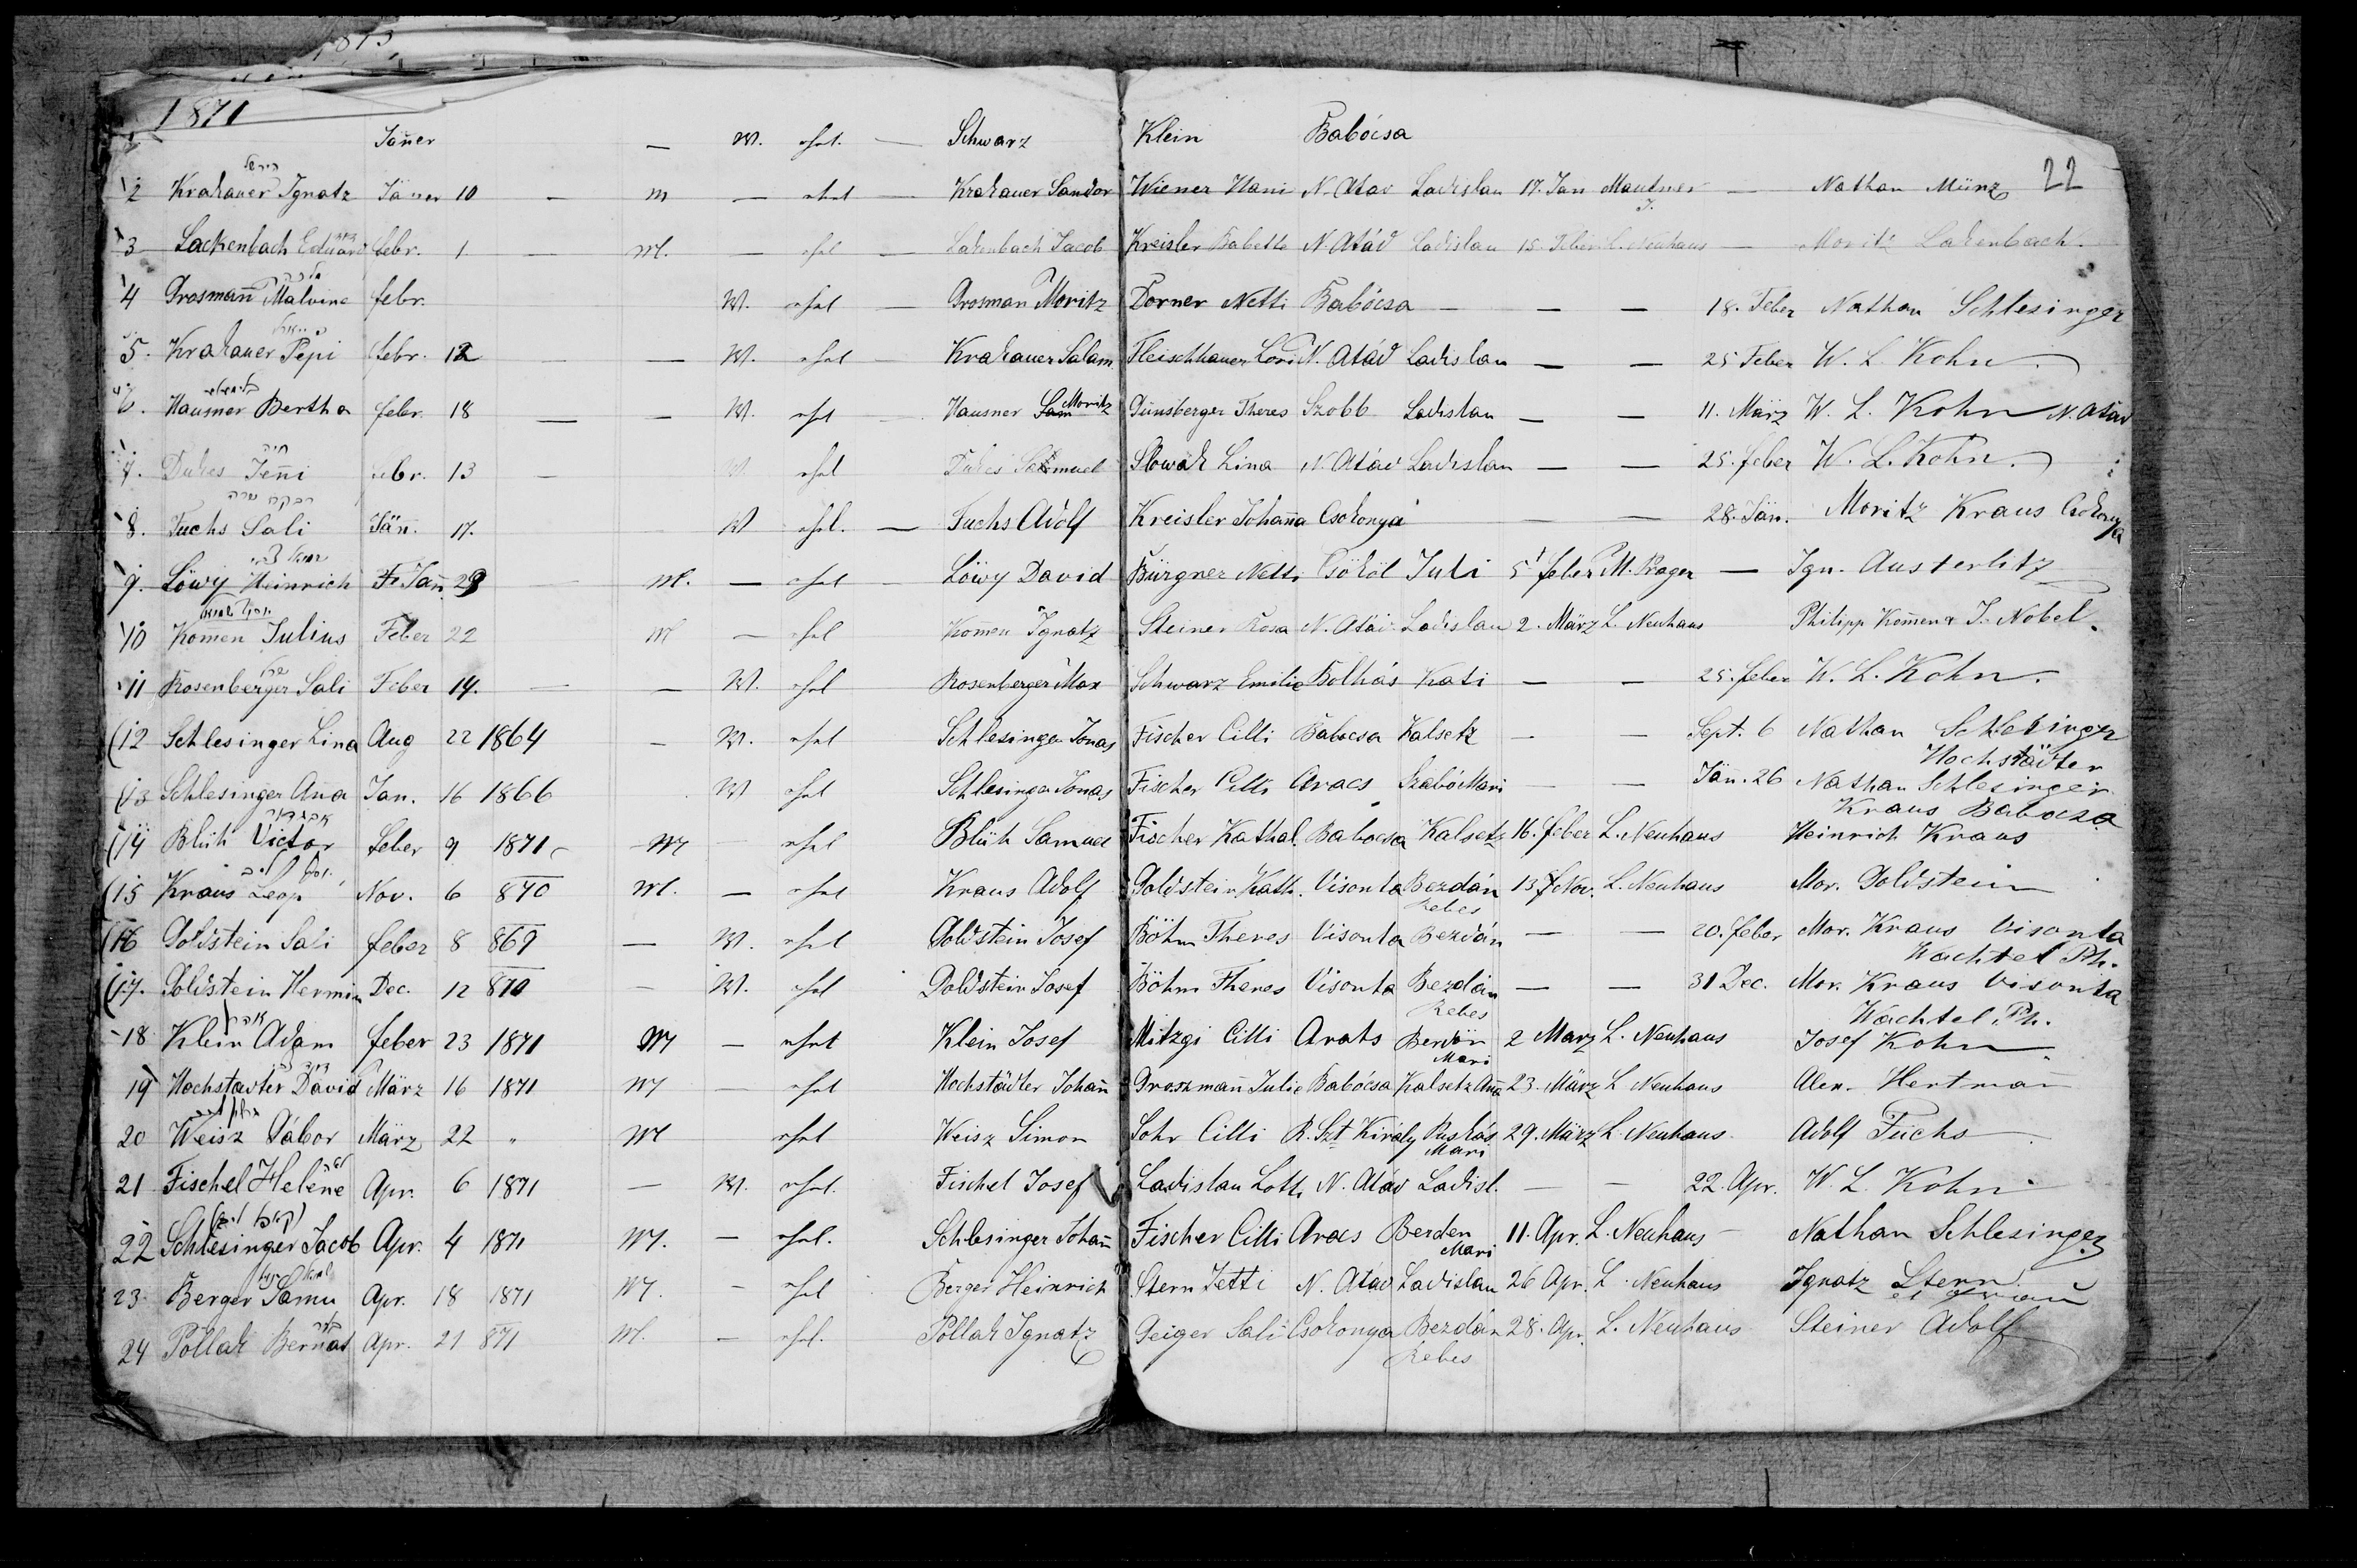 1873
1871
22
1 Jäner — W. ehel. — Schwarz Klein Babócsa
2 Krakauer Ignatz Jäner 10 — m — ehel — Krakauer Sandor Wiener Hani N. Atad Ladislau 17. Jan Mautner J. — Nathan Münz
3 Lackenbach Eduard febr. 1 — M. — ehel — Lakenbach Jacob Kreisler Babette N. Atád Ladislau 15. Feber L. Neuhaus — Moritz Lakenbach.
4 Grosmañ Malvine febr. W. ehel — Grosman Moritz Dorner Netti Babócsa — — — 18. Feber Nathan Schlesinger
5. Krakauer Pepi febr. 12 — — W. ehel — Krakauer Salam. Fleischhauer Lori N. Atád Ladislau — — 25 Feber W. L. Kohn
6. Hausner Bertha febr. 18 — — W. ehel — Hausner Sam Moritz Günsberger Theres Szobb Ladislau — — 11. März W. L. Kohn N. Atád
7. Dukes Jeñi febr. 13 — W. ehel Dukes Samuel Slowak Lina N. Atád Ladislau — — 25. feber W. L. Kohn.
רבקה שרה
8. Fuchs Sali Jän. 17. W ehel. — Fuchs Adolf Kreisler Johaña Csokonya — — 28. Jän. Moritz Kraus Csokonya
9. Löwy Heinrich Fr Jañ. 29 — M. — ehel — Löwy David Bürgner Netti Csököl Juli 5 feber M. Prager — Ign. Austerlitz
10 Kom̄en Julius Feber 22 M — ehel Kom̄en Ignatz Steiner Rosa N. Atád Ladislau 2. März L. Neuhaus Philipp Kom̄en & J. Nobel.
11 Rosenberger Sali Feber 14. — — W. ehel Rosenberger Max Schwarz Emilie Bolhás Kati — — 25. feber W. L. Kohn.
12 Schlesinger Lina Aug 22 1864 — W. ehel Schlesinger Jonas Fischer Cilli Babocsa Kalsetz — — Sept. 6 Nathan Schlesinger
Hochstädter
13 Schlesinger Aña Jan. 16 1866 W ehel Schlesinger Jonas Fischer Cilli Aracs Szabó Mari — — Jän. 26 Nathan Schlesinger
Kraus Babocsa
14 Blüh Victor feber 9 1871 M — ehel Blüh Samuel Fischer Kathal. Babocsa Kalsetz 16. feber L. Neuhaus Heinrich Kraus
15 Kraus Leop Nov. 6 870 M. — ehel Kraus Adolf Goldstein Kath. Visonta Bezdán Rebes 13 Nov. L. Neuhaus Mor. Goldstein
16 Goldstein Sali feber 8 869 — W. ehel Goldstein Josef Böhm Theres Visonta Bezdán — — 20. feber Mor. Kraus Visonta
Wachtel Ph.
17. Goldstein Hermin Dec. 12 870 — W. ehel Goldstein Josef Böhm Theres Visonta Bezdán Rebes — — 31 Dec. Mor. Kraus Visonta
Wachtel Ph.
18 Klein Adam feber 23 1871 M — ehel Klein Josef Mitzgi Cilli Arats Berdën Mari 2 Marz L. Neuhaus Josef Kohn
19 Hochstadter David März 16 1871 M — ehel Hochstädter Johañ Groszmañ Julie Babócsa Kalsetz Aña 23. März L. Neuhaus Alex. Hertmañ
20 Weisz Gábor März 22 " M ehel Weisz Simon Sohr Cilli R. Szt Király Puskás Mari 29. März L. Neuhaus Adolf Fuchs
21 Fischel Helene Apr. 6 1871 — W. ehel. Fischel Josef Ladislau Lotti N. Atád Ladisl. — — 22. Apr. W. L. Kohn
22 Schlesinger Jacob Apr. 4 1871 M. — ehel. Schlesinger Johañ Fischer Cilli Aracs Berden Mari 11. Apr. L. Neuhaus Nathan Schlesinger
23 Berger Samu Apr. 18 1871 M. — ehel Berger Heinrich Stern Jetti N. Atád Ladislau 26 Apr. L. Neuhaus Ignatz Stern
24 Pollak Bernat Apr. 21 871 M. — ehel. Pollak Ignatz Geiger Sali Csokonya Bezdán Rebes 28. Apr. L. Neuhaus Steiner Adolf